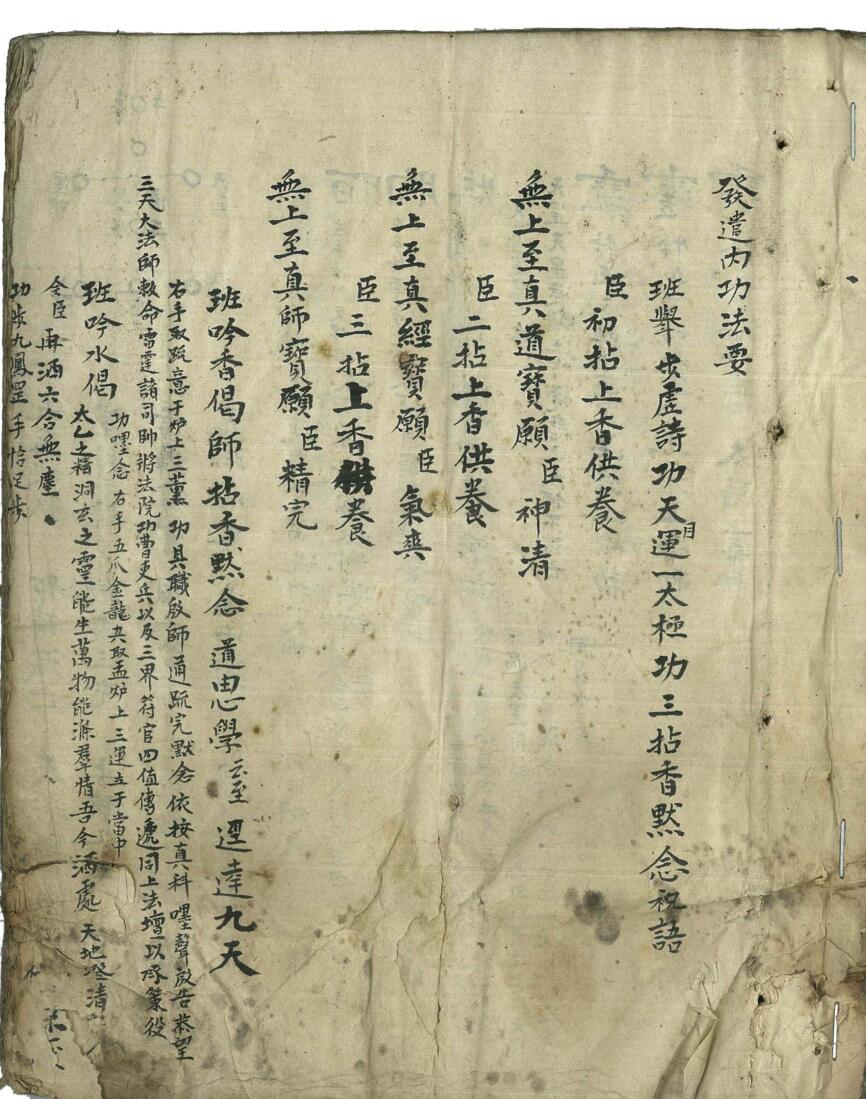 發遣內功法要
班舉步虛詩功天目運一太極功三拈香默念祝語
臣初拈上香供養
無上至真道寶願臣神清
臣二拈上香供養
無上至真經寶願臣氣爽
臣三拈上香供養
無上至真師寶願臣精完
班吟香偈師拈香默念 道由心學云至逕達九天
右手取疏意于炉上三薰 功具職啟師通疏完默念 依按真科嘿聲啟告恭望
三天大法師敕命雷霆諸司帥將法院功曹吏兵以及三界符官四值傳遞同上法壇以承策役
班吟水偈 功嘿念 右手五爪金龍夾取盂炉上三運立于當中
太乙之精洞玄之靈能生萬物能滌羣情吾今洒處 天地澄清
令臣再洒六合無塵
功步九鳳罡 手恰足步